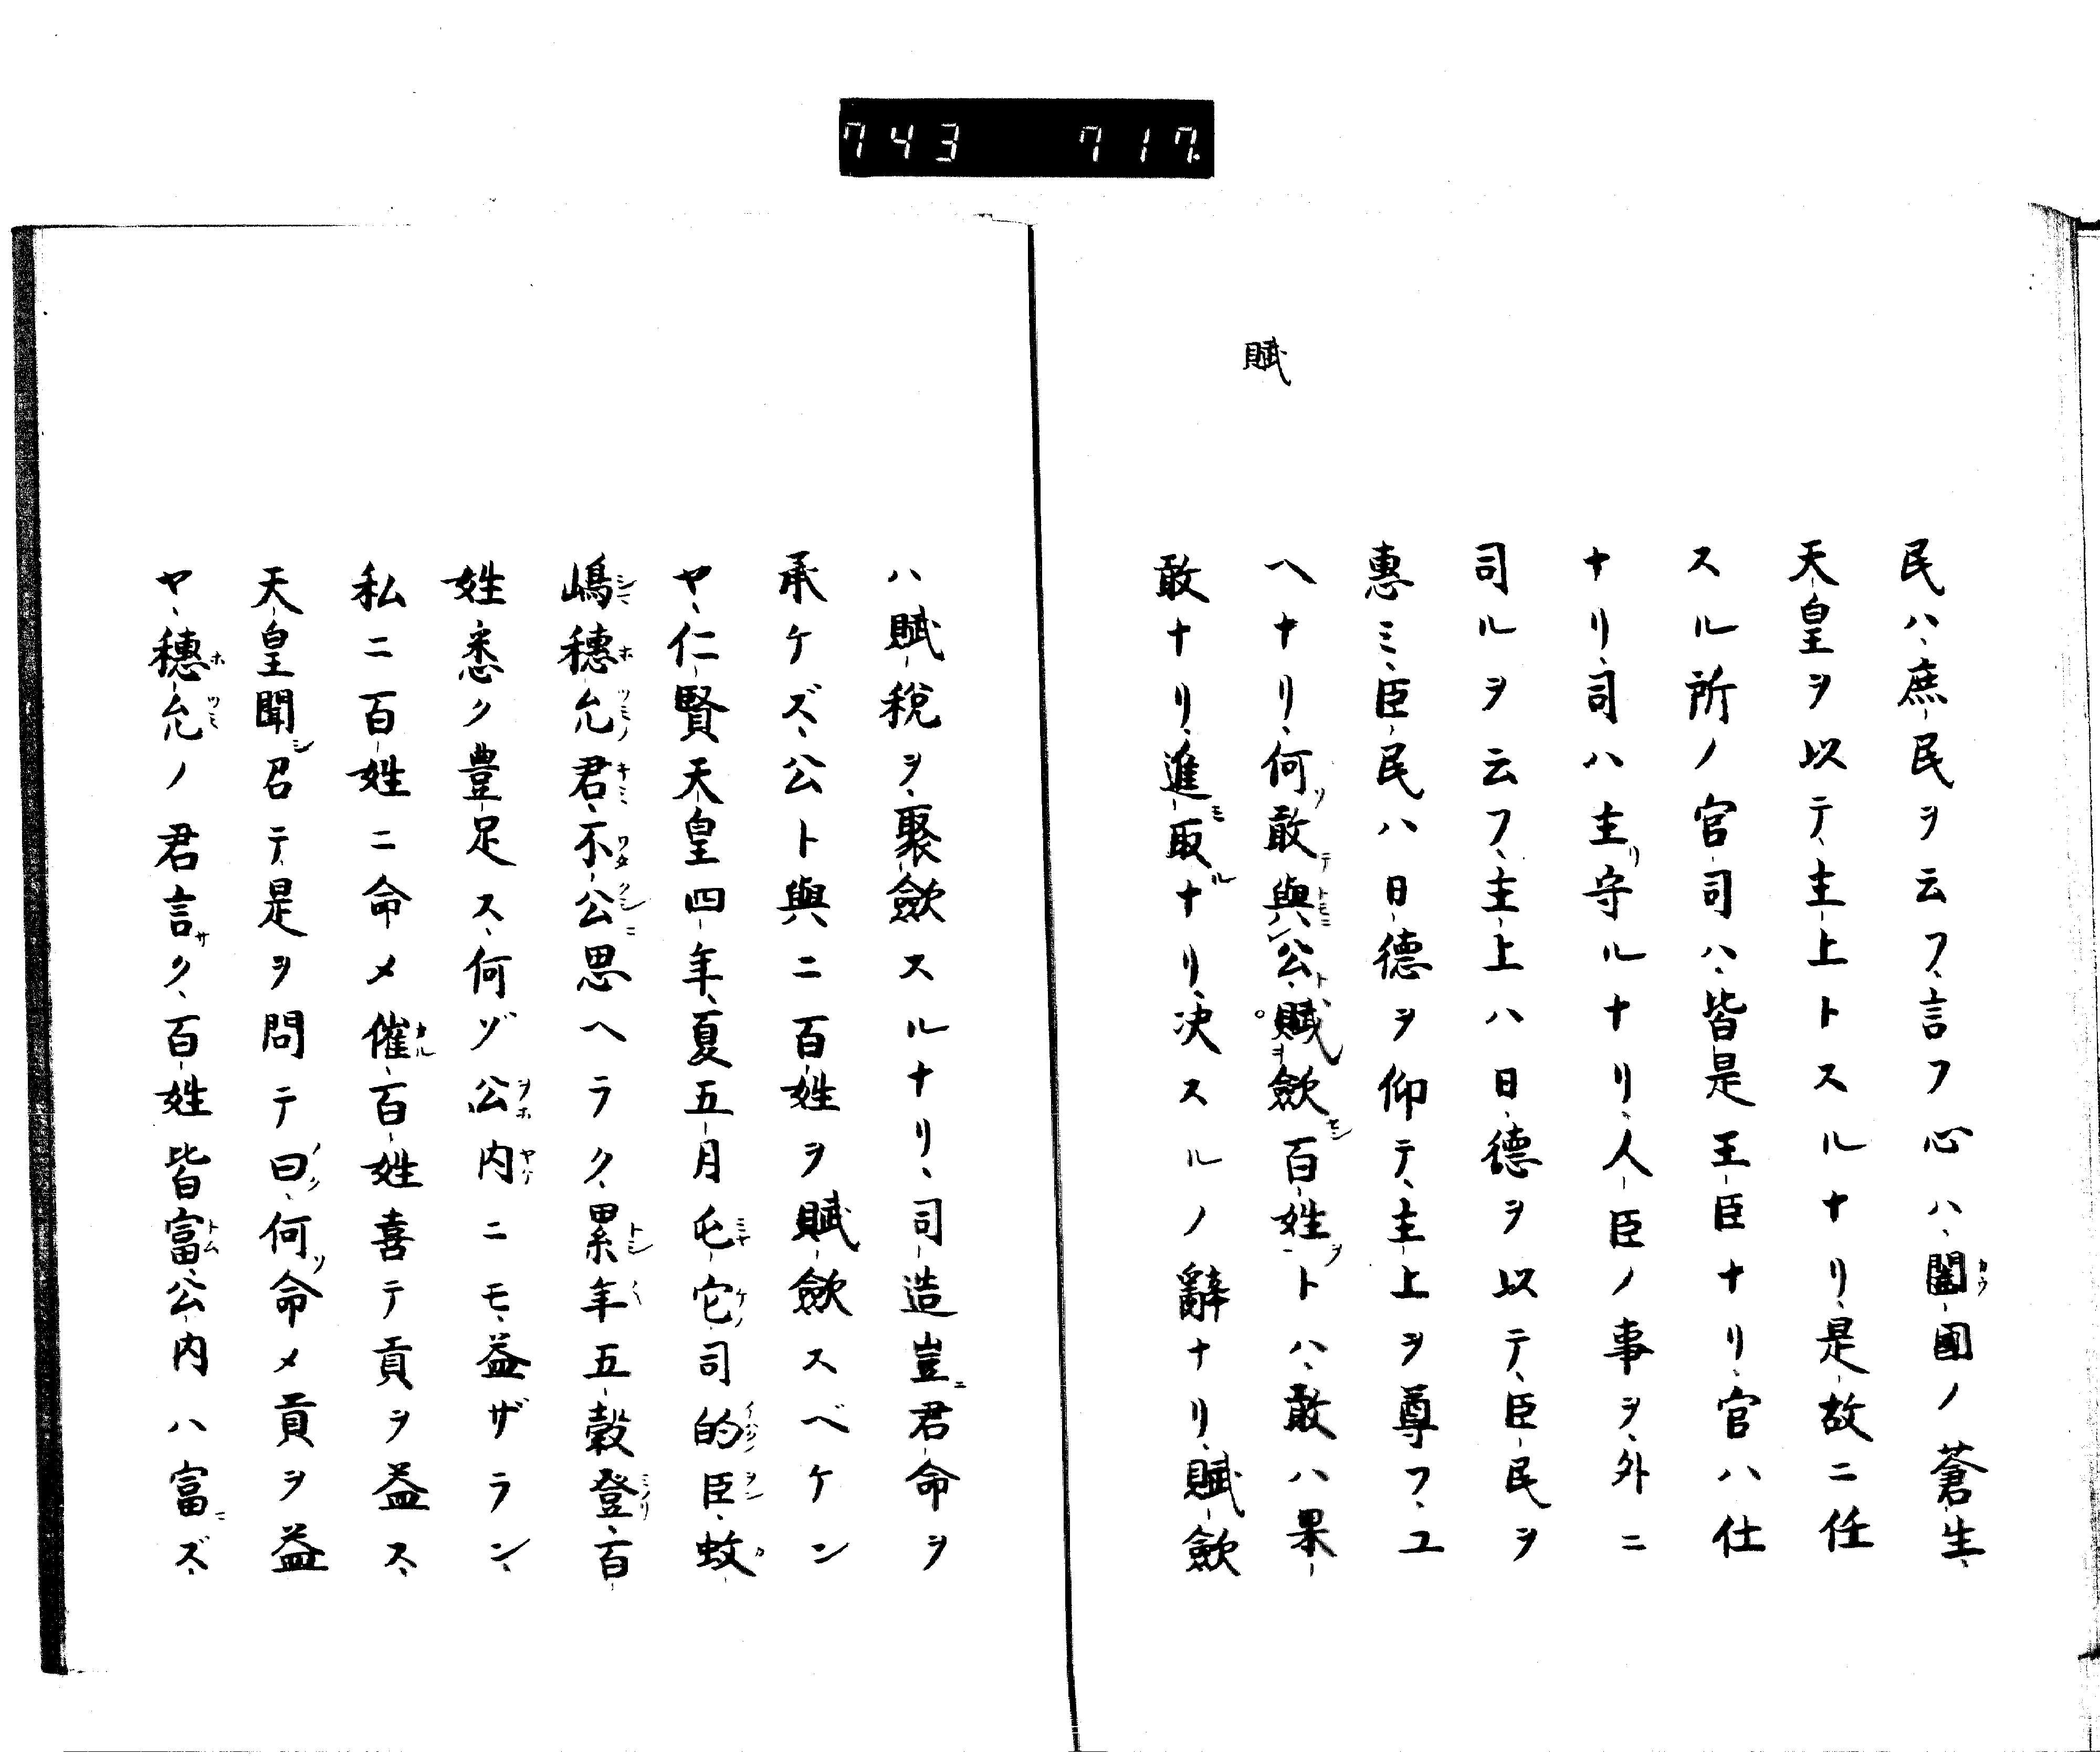 743 717.
賦
民ハ、庶民ヲ云フ、言フ心ハ、闔國ノ蒼生、
天皇ヲ以テ、主上トスルナリ、是故ニ任
スル所ノ官司ハ、皆是王臣ナリ、官ハ仕
ナリ、司ハ主守ルナリ、人臣ノ事ヲ、外ニ
司ルヲ云フ、主上ハ日德ヲ以テ、臣民ヲ
惠ミ、臣民ハ日德ヲ仰テ、主上ヲ尊フ、ユ
ヘナリ、何敢與公、賦歛百姓トハ、敢ハ果
敢ナリ、進取ナリ、決スルノ辭ナリ、賦歛
ハ賦税ヲ、聚歛スルナリ、司造豈君命ヲ
承ケズ、公ト與ニ百姓ヲ賦歛スベケン
ヤ、仁賢天皇四年、夏五月屯宅司的臣、蚊
嶋穗允君、不公思ヘラク、累年五穀登、百
姓悉ク豊足ス、何ゾ公内ニモ、益ザラン、
私ニ百姓ニ命メ催、百姓喜テ貢ヲ益ス、
天皇聞召テ、是ヲ問テ曰、何命メ貢ヲ益
ヤ、穗允ノ君言ク、百姓皆富、公内ハ富ズ、